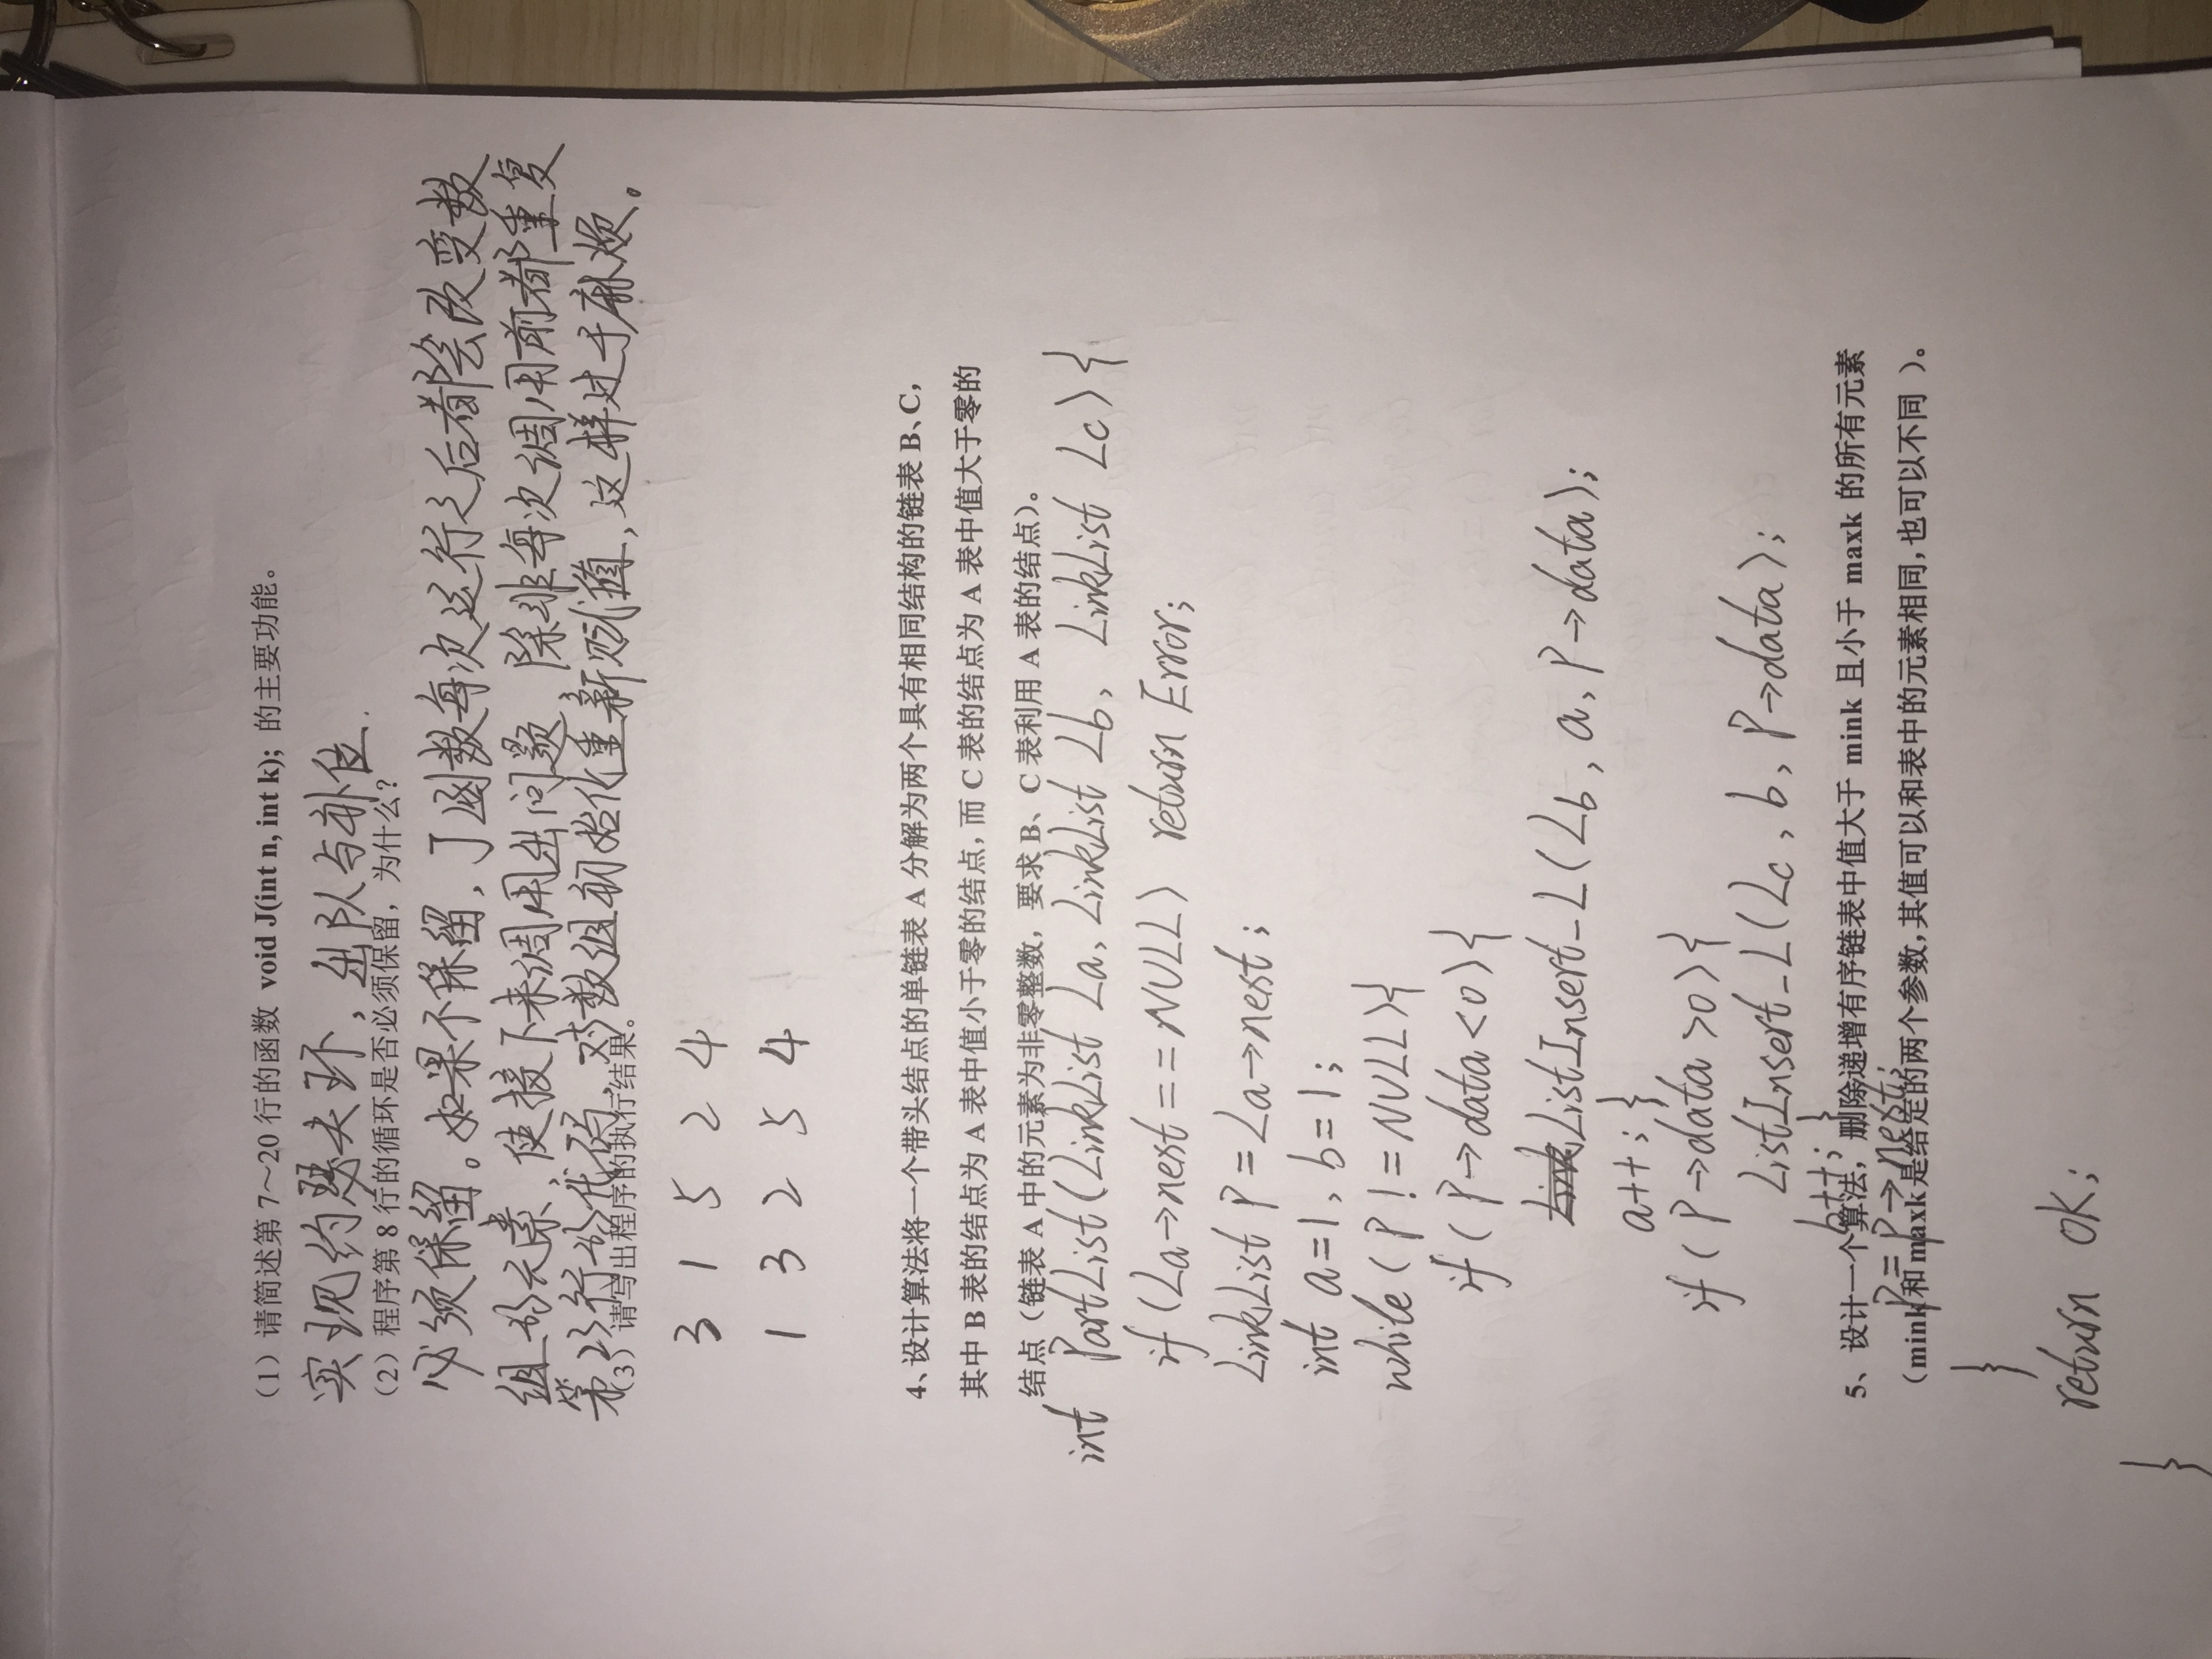 （1）请简述第 7～20 行的函数 void J(int n, int k); 的主要功能。
实现约瑟夫环，出队与补位.
（2）程序第 8 行的循环是否必须保留，为什么？
必须保留。如果不保留，J函数每次运行之后都会改变数
组的元素，使接下来调用出问题，除非每次调用前都重复
（3）请写出程序的执行结果。
对数组初始化重新 ，这样过于麻烦。
3 1 5 2 4
1 3 2 5 4
4、设计算法将一个带头结点的单链表 A 分解为两个具有相同结构的链表 B、C，
其中 B 表的结点为 A 表中值小于零的结点，而 C 表的结点为 A 表中值大于零的
结点（链表 A 中的元素为非零整数，要求 B、C 表利用 A 表的结点）。
int PartList(LinkList La, LinkList Lb, LinkList Lc) {
if (La→next == NULL) return Error;
LinkList P = La→next;
int a=1, b=1;
while (P != NULL) {
if (P→data <0) {
ListInsert_L(Lb, a, P→data);
a++; }
if (P→data >0) {
ListInsert_L(Lc, b, P→data);
b++; }
5、设计一个算法，删除递增有序链表中值大于 mink 且小于 maxk 的所有元素
P = P→next;
（mink 和 maxk 是给定的两个参数，其值可以和表中的元素相同，也可以不同 ）。
}
return OK;
}